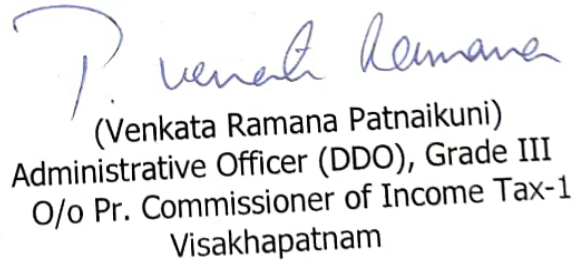 P. Venkata Ramana
(Venkata Ramana Patnaikuni)
Administrative Officer (DDO), Grade III
O/o Pr. Commissioner of Income Tax-1
Visakhapatnam